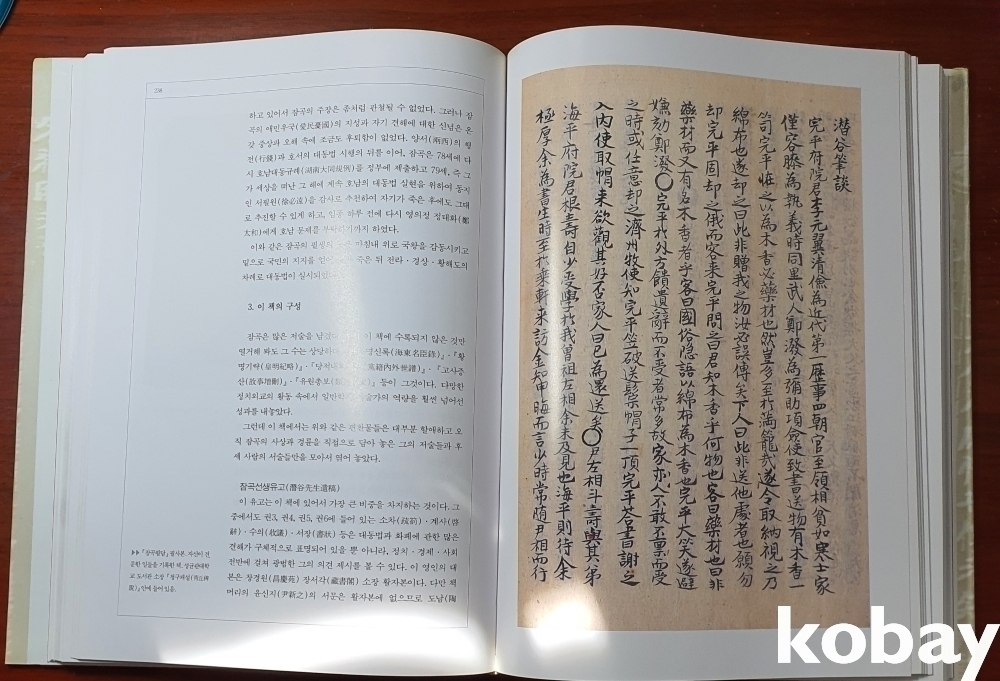 238
하고 있어서 잠곡의 주장은 좀처럼 관철될 수 없었다. 그러나 잠
곡의 애민우국(愛民憂國)의 지성과 자기 견해에 대한 신념은 온
갖 중상과 모해 속에 조금도 후퇴함이 없었다. 양서(兩西)의 행
전(行錢)과 호서의 대동법 시행의 뒤를 이어, 잠곡은 78세에 다
시 호남대동규례(湖南大同規例)를 정부에 제출하고 79세, 즉 그
가 세상을 떠난 그 해에 계속 호남의 대동법 실현을 위하여 동지
인 서필원(徐必遠)을 감사로 추천하여 자기가 죽은 후에도 그대
로 추진할 수 있게 하고, 임종 하루 전에 다시 영의정 정태화(鄭
太和)에게 호남 문제를 하였다.
이와 같은 잠곡의 마침내 위로 국왕을 감동시키고
밑으로 국민의 지지를 죽은 뒤 전라·경상·황해도의
차례로 대동법이 실시되었
3. 이 책의 구성
잠곡은 많은 저술을 남겼 이 책에 수록되지 않은 것만
열거해 봐도 그 수는 상당하 명신록(海東名臣錄)』·『황
명기략(皇明紀略)』·『 籍內外世譜)』·『고사증
산(故事增刪)』·『유원총보 』 등이 그것이다. 다망한
정치외교의 활동 속에서 일반 술가의 역량을 훨씬 넘어선
성과를 내놓았다.
그런데 이 책에서는 위와 같은 편찬물들은 대부분 할애하고 오
직 잠곡의 사상과 경륜을 직접으로 담아 놓은 그의 저술들과 후
세 사람의 서술들만을 모아서 엮어 놓았다.
잠곡선생유고(潛谷先生遺稿)
이 유고는 이 책에 있어서 가장 큰 비중을 차지하는 것이다. 그
중에서도 권3, 권4, 권5, 권6에 들어 있는 소차(疏箚)·계사(啓
辭)·수의(收議)·서장(書狀) 등은 대동법과 화폐에 관한 많은
견해가 구체적으로 표명되어 있을 뿐 아니라, 정치·경제·사회
전반에 걸쳐 광범한 그의 의견 제시를 볼 수 있다. 이 영인의 대
본은 창경원(昌慶苑) 장서각(藏書閣) 소장 활자본이다. 다만 책
머리의 윤신지(尹新之)의 서문은 활자본에 없으므로 도남(陶
▶▶『잠곡필담』필사본. 자신이 견
문한 일들을 기록한 책. 성균관대학
교 도서관 소장 『청구패설(靑丘稗
說)』안에 들어 있음.
潛谷筆談
完平府院君李元翼淸儉爲近代第一歷事四朝官至領相貧如寒士家
僅容膝爲執義時同里武人鄭潑爲彌助項僉使致書送物有木香一
笥完平恠之以爲木香必藥材也然豈多至於滿籠哉遂令取納視之乃
綿布也遂却之曰此非贈我之物汝必誤傳矣下人曰此非送他處者也願勿
却完平固却之俄而客來完平問之曰君知木香乎何物也客曰藥材也曰非
藥材而又有名木香者乎客曰國俗隱語以綿布爲木香也完平大笑遂避
嫌劾鄭潑〇完平於外方饋遺辭而不受者常多故家亦人不敢不稟而受
之時或任意却之濟州牧使知完平笠破送鬃帽子一頂完平荅書謝之
入內使取帽來欲觀其好否家人曰已爲還送矣〇尹左相斗壽與其弟
海平府院君根壽自少受學於我曾祖左相余未及見也海平則待余
極厚余爲書生時至於乘軒來訪金知中晦而言少時常隨尹相而行
kobay